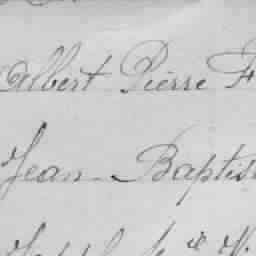 Albert Pierre F
Jean-Baptis